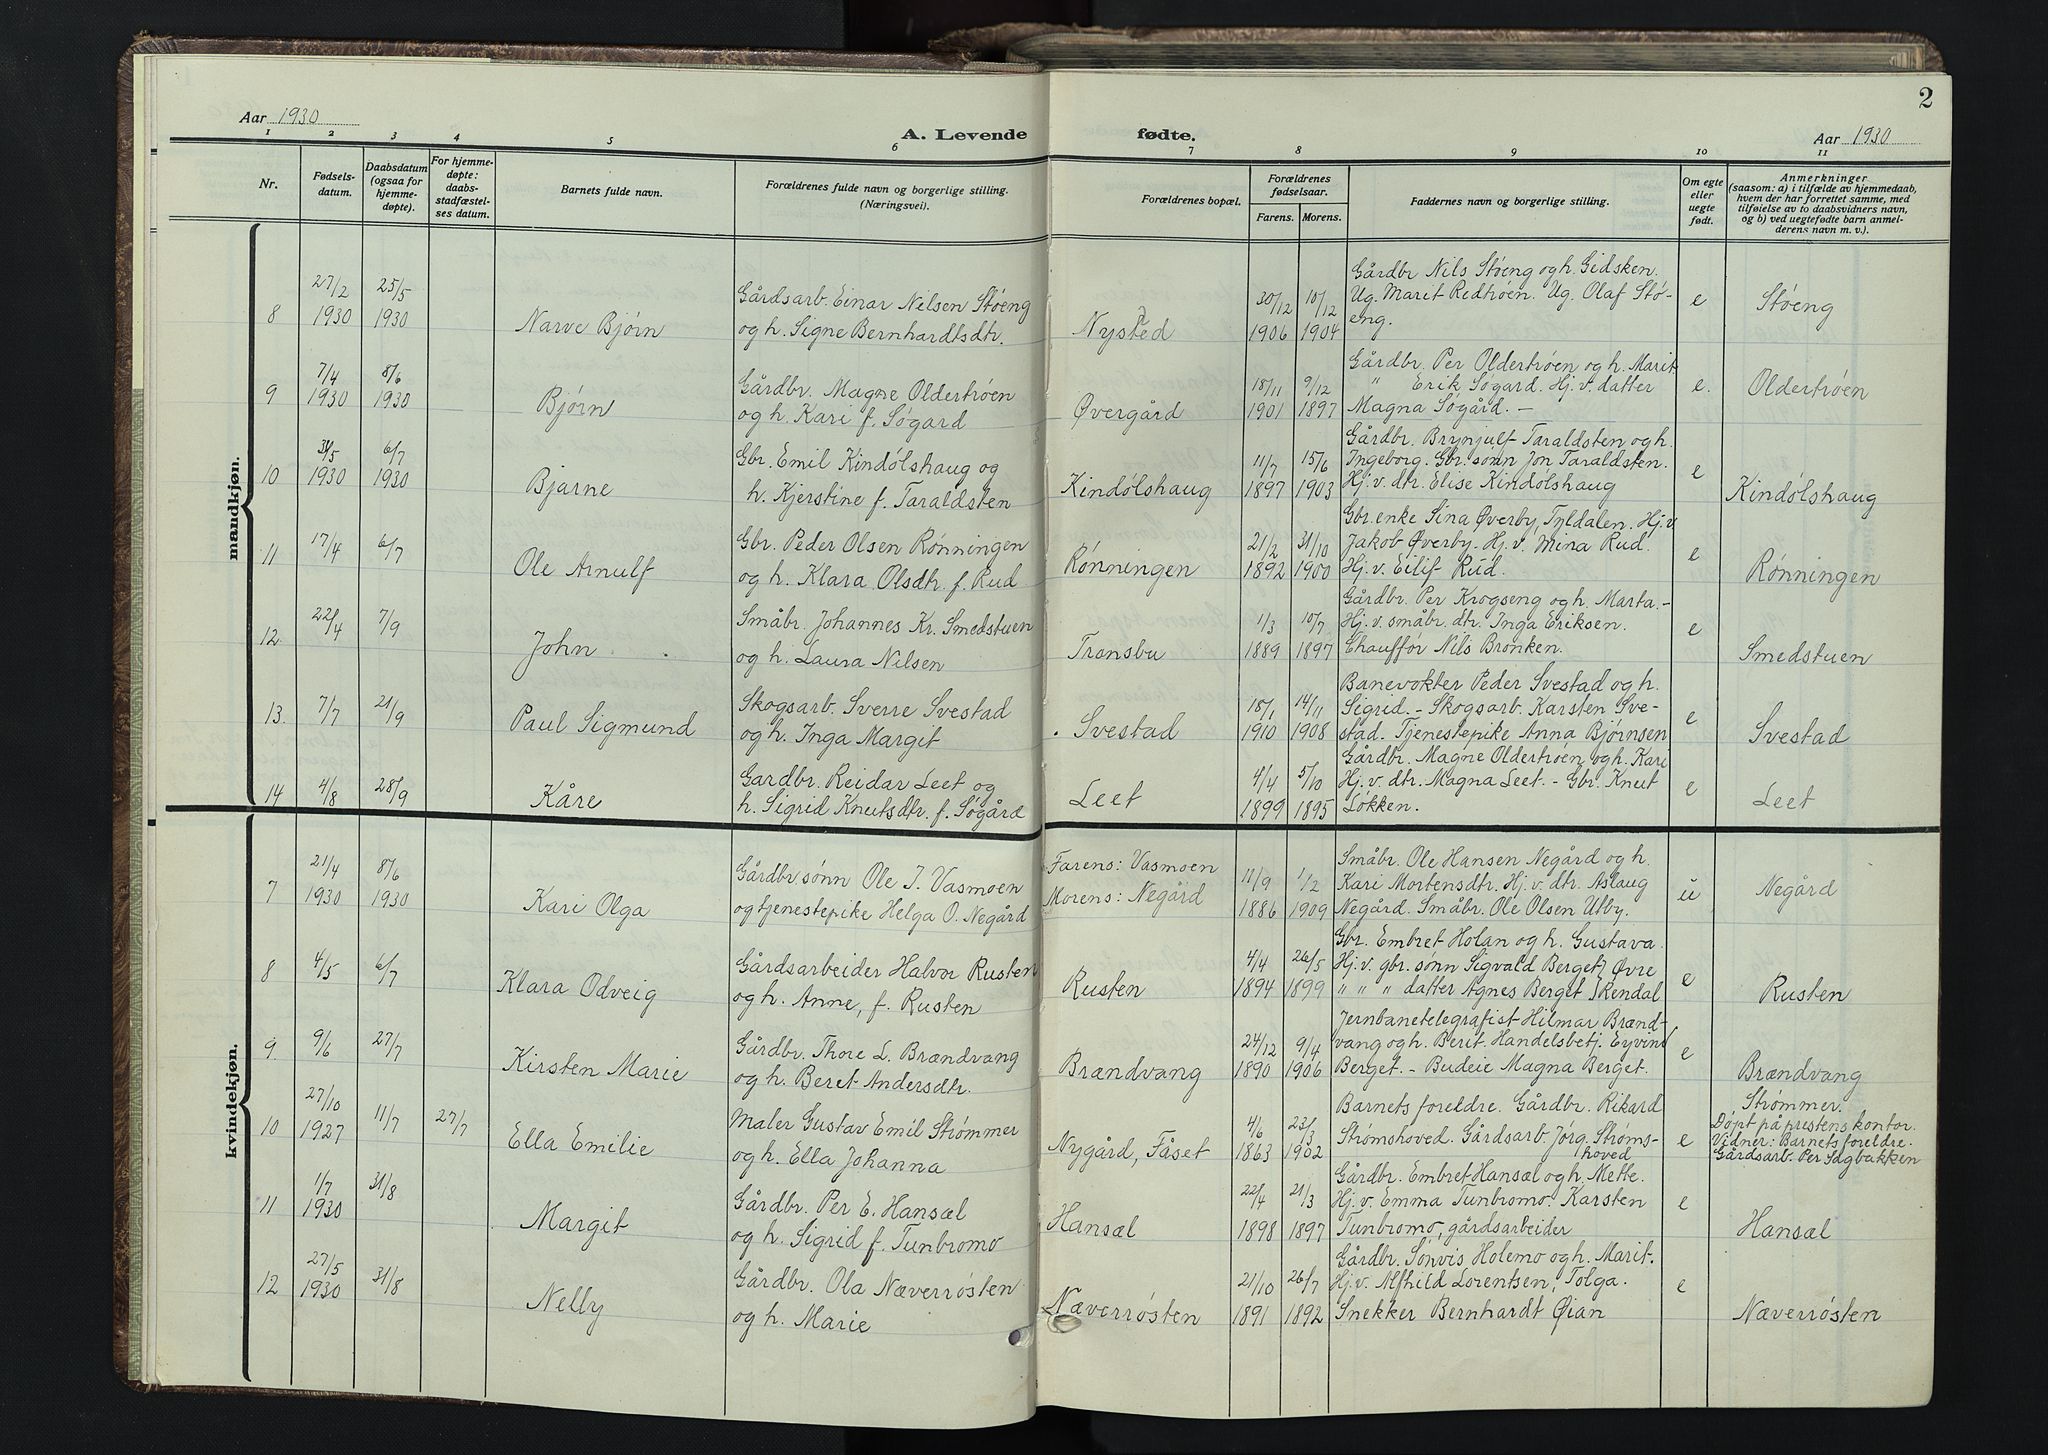 2
Aar 1930
A. Levende fødte.
Aar 1930
1 2 3 4 5 6 7 8 9 10 11
Nr.
Fødsels-
datum.
Daabsdatum
(ogsaa for
hjemme-
døpte).
For hjemme-
døpte:
daabs-
stadfæstel-
ses datum.
Barnets fulde navn.
Forældrenes fulde navn og borgerlige stilling.
(Næringsvei).
Forældrenes bopæl.
Forældrenes
fødselsaar.
Farens. Morens.
Faddernes navn og borgerlige stilling.
Om egte
eller
uegte
født.
Anmerkninger
(saasom: a) i tilfælde av hjemmedaab,
hvem der har forrettet samme, med
tilføielse av to daabsvidners navn,
og b) ved uegtefødte barn anmel-
derens navn m. v.).
mandkjøn.
8
27/2
1930
25/5
1930
Narve Bjørn
Gårdsarb. Einar Nilsen Støeng
og h. Signe Bernhardtsdtr.
Nysted
30/12
1906
10/12
1904
Gårdbr Nils Støeng og h. Gidsken.
Ug. Marit Redtrøen. Ug. Olaf Stø-
eng.
e
Støeng
9
7/4
1930
8/6
1930
Bjørn
Gårdbr. Magne Oldertrøen
og h. Kari f. Søgard
Øvergård
18/11
1901
9/12
1897
Gårdbr. Per Oldertrøen og h. Marit
" Erik Søgard. Hj. v. datter
Magna Søgård. –
e.
Oldertrøen
10
31/5
1930
6/7
1930
Bjarne
Gbr. Emil Kindølshaug og
h. Kjerstine f. Taraldsten
Kindølshaug
11/7
1897
15/6
1903
Gårdbr. Brynjulf Taraldsten og h.
Ingeborg. Gbr. sønn Jon Taraldsten.
Hj. v. dtr. Elise Kindølshaug
e
Kindølshaug
11
17/4
6/7
Ole Arnulf
Gbr. Peder Olsen Rønningen
og h. Klara Olsdtr. f. Rud
Rønningen
21/2
1892
31/10
1900
Gbr. enke Sina Øverby, Tyldalen. Hj. v.
Jakob Øverby. Hj. v. Mina Rud.
Hj. v. Eilif Rud.
e
Rønningen
12.
22/4
7/9
John
Småbr. Johannes Kr. Smedstuen
og h. Laura Nilsen
Transbu
1/3
1889
10/7
1897
Gårdbr. Per Krogseng og h. Marta. –
Hj. v. småbr. dtr. Inga Eriksen.
Chauffør Nils Brønken.
e
Smedstuen
13.
7/7
21/9
Paul Sigmund
Skogsarb. Sverre Svestad
og h. Inga Margit
Svestad
18/1
1910
14/11
1908
Banevokter Peder Svestad og h.
Sigrid. – Skogsarb. Karsten Sve-
stad. Tjenestepike Anna Bjørnsen
e
Svestad
14
4/8
28/9
Kåre
Gardbr. Reidar Leet og
h. Sigrid Knutsdtr. f. Søgård
Leet
4/4
1899
5/10
1895
Gårdbr. Magne Oldertrøen og h. Kari
Hj. v. dtr. Magna Leet. – Gbr. Knut
Løkken.
e
Leet
kvindekjøn.
7
21/4
1930
8/6
1930
Kari Olga
Gårdbr sønn Ole J. Vasmoen
og tjenestepike Helga O. Negård
Farens: Vasmoen
Morens: Negård
11/9
1886
1/2
1909
Småbr. Ole Hansen Negård og h.
Kari Mortensdtr. Hj. v. dtr. Aslaug
Negård. Småbr. Ole Olsen Utby.
u
Negård
8
4/5
6/7
Klara Odveig
Gårdsarbeider Halvor Rusten
og h. Anne, f. Rusten
Rusten
4/4
1894
26/5
1899
Gbr. Embret Holan og h. Gustava.
Hj. v. gbr. sønn Sigvald Berget } Øvre
" " " datter Agnes Berget } Rendal
e
Rusten
9
9/6
27/7
Kirsten Marie
Gårdbr. Thore L. Brændvang
og h. Beret Andersdtr.
Brændvang
24/12
1890
9/4
1906
Jernbanetelegrafist Hilmar Brænd-
vang og h. Berit. Handelsbetj. Eyvind
Berget. – Budeie Magna Berget.
e
Brændvang
10
27/10
1927
11/7
27/7
Ella Emilie
Maler Gustav Emil Strømmer
og h. Ella Johanna
Nygård, Fåset
4/6
1863
23/3
1902
Barnets foreldre. Gårdbr. Rikard
Strømshoved. Gårdsarb. Jørg. Strøms-
hoved
e
Strømmer.
Døpt på prestens kontor.
Vidner: Barnets foreldre.
Gårdsarb. Per Sagbakken
11
1/7
1930
31/8
Margit
Gårdbr. Per E. Hansæl
og h. Sigrid f. Tunbromo
Hansæl
22/4
1898
21/3
1897
Gårdbr. Embret Hansæl og h. Mette.
Hj. v. Emma Tunbromo. Karsten
Tunbromo, gårdsarbeider
e
Hansæl
12
27/5
1930
31/8
Nelly
Gårdbr. Ola Næverrøsten
og h. Marie
Næverrøsten
21/10
1891
26/7
1892
Gårdbr. Sønvis Holemo og h. Marit.
Hj. v. Alfhild Lorentsen, Tolga.
Snekker Bernhardt Øian
e
Næverrøsten